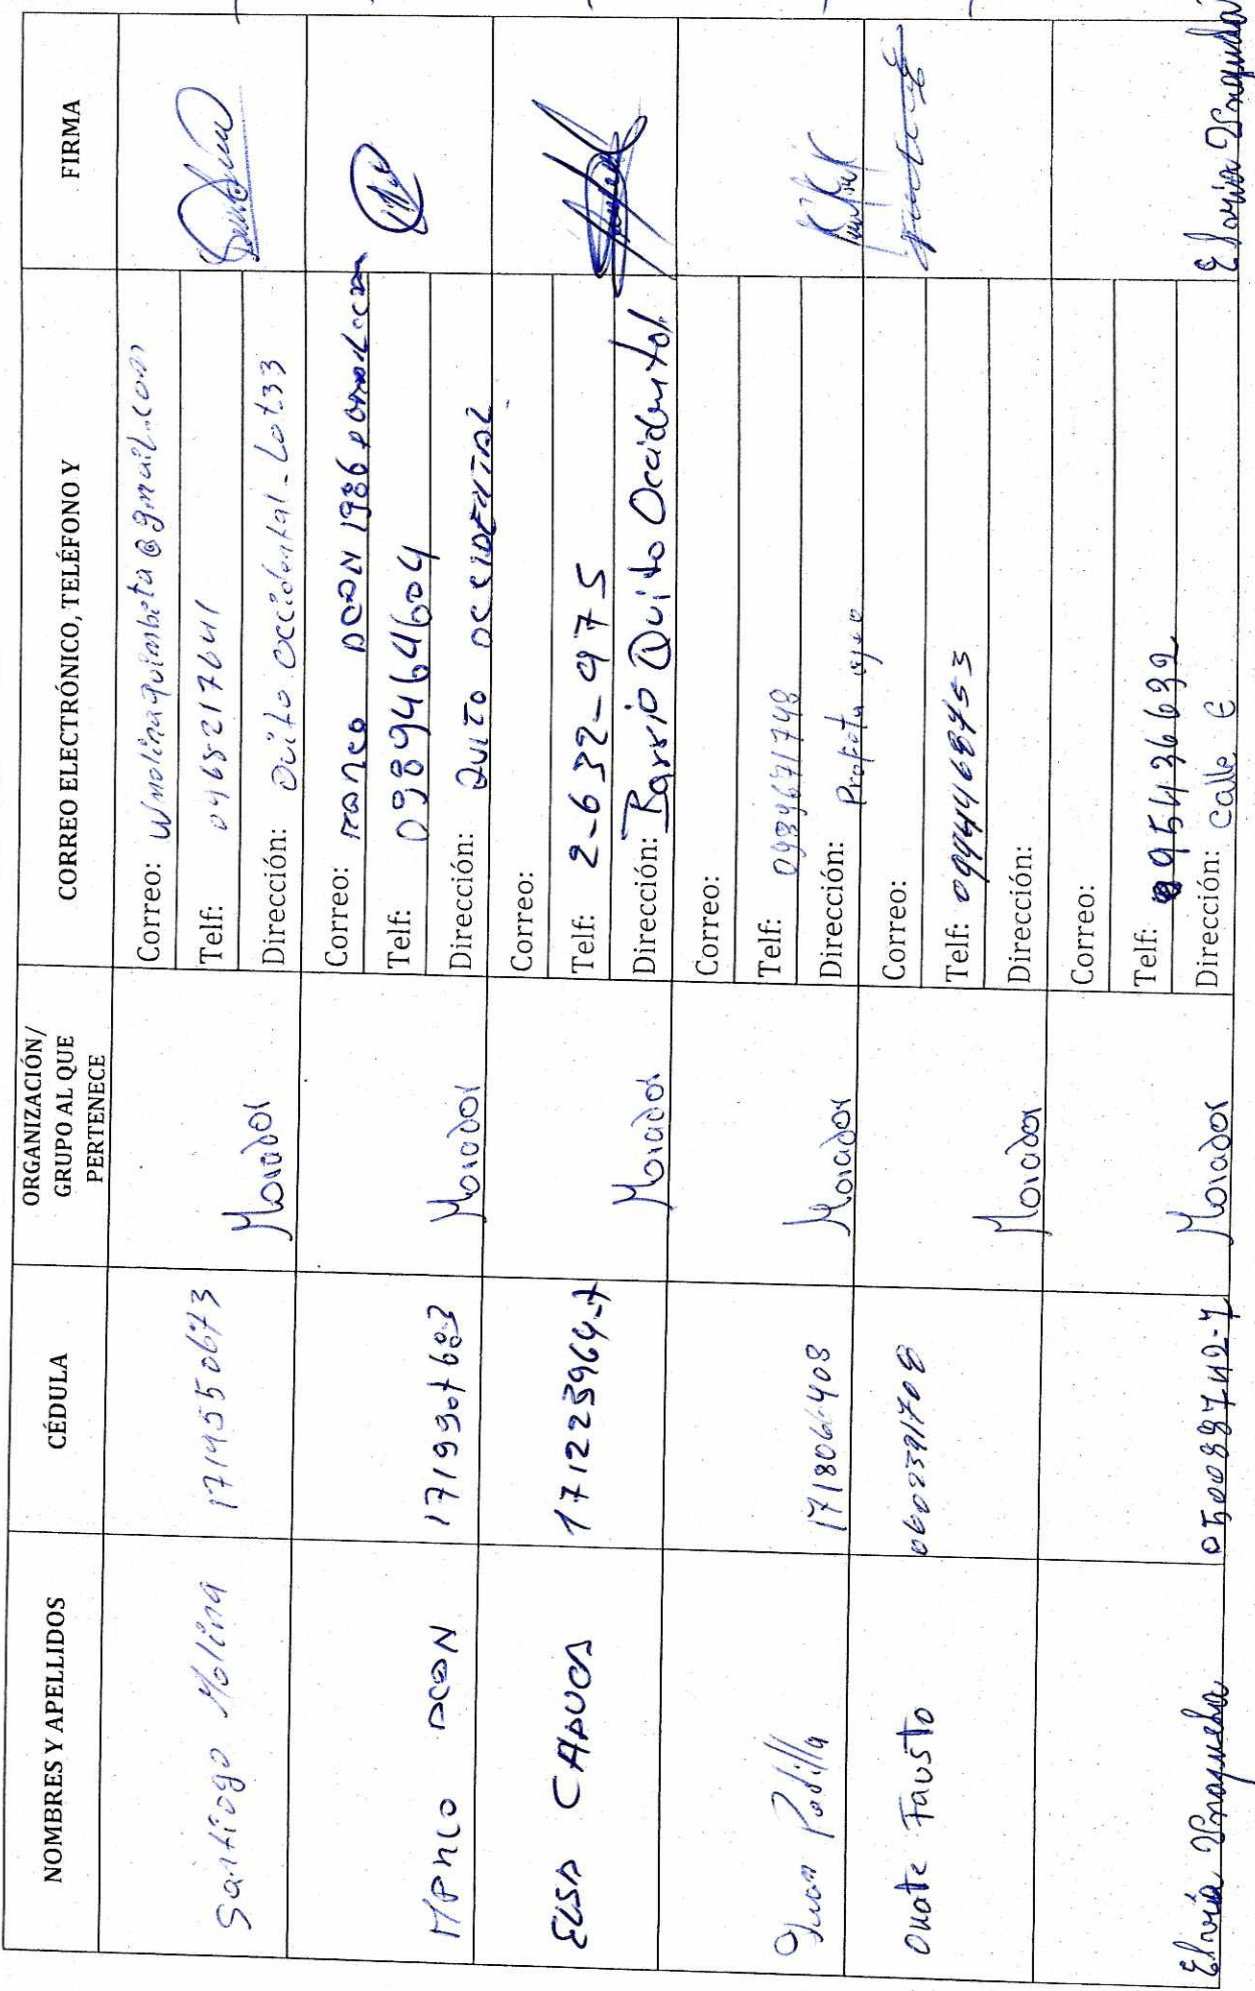 NOMBRES Y APELLIDOS
CÉDULA
ORGANIZACIÓN/
GRUPO AL QUE
PERTENECE
CORREO ELECTRÓNICO, TELÉFONO Y
FIRMA
Santiago Molina
1714550673
Morador
Correo: Wmolinaquimbita@gmail.com
Telf: 0968217641
Dirección: Quito Occidental-Lot33
MARCO ACAN
1719907683
Morador
Correo: ACAN 1986
Telf: 0989464604
Dirección: QUITO OCCIDENTAL
ELSA
171223964-7
Morador
Correo:
Telf: 2-632-975
Dirección: Barrio Quito Occidental
Juan Padilla
1718066408
Morador
Correo:
Telf: 0989671748
Dirección:
Oñate Fausto
0602391708
Morador
Correo:
Telf: 0994468453
Dirección:
Elvia
050088742-7
Morador
Correo:
Telf: 0954366392
Dirección: Calle E
Elvia